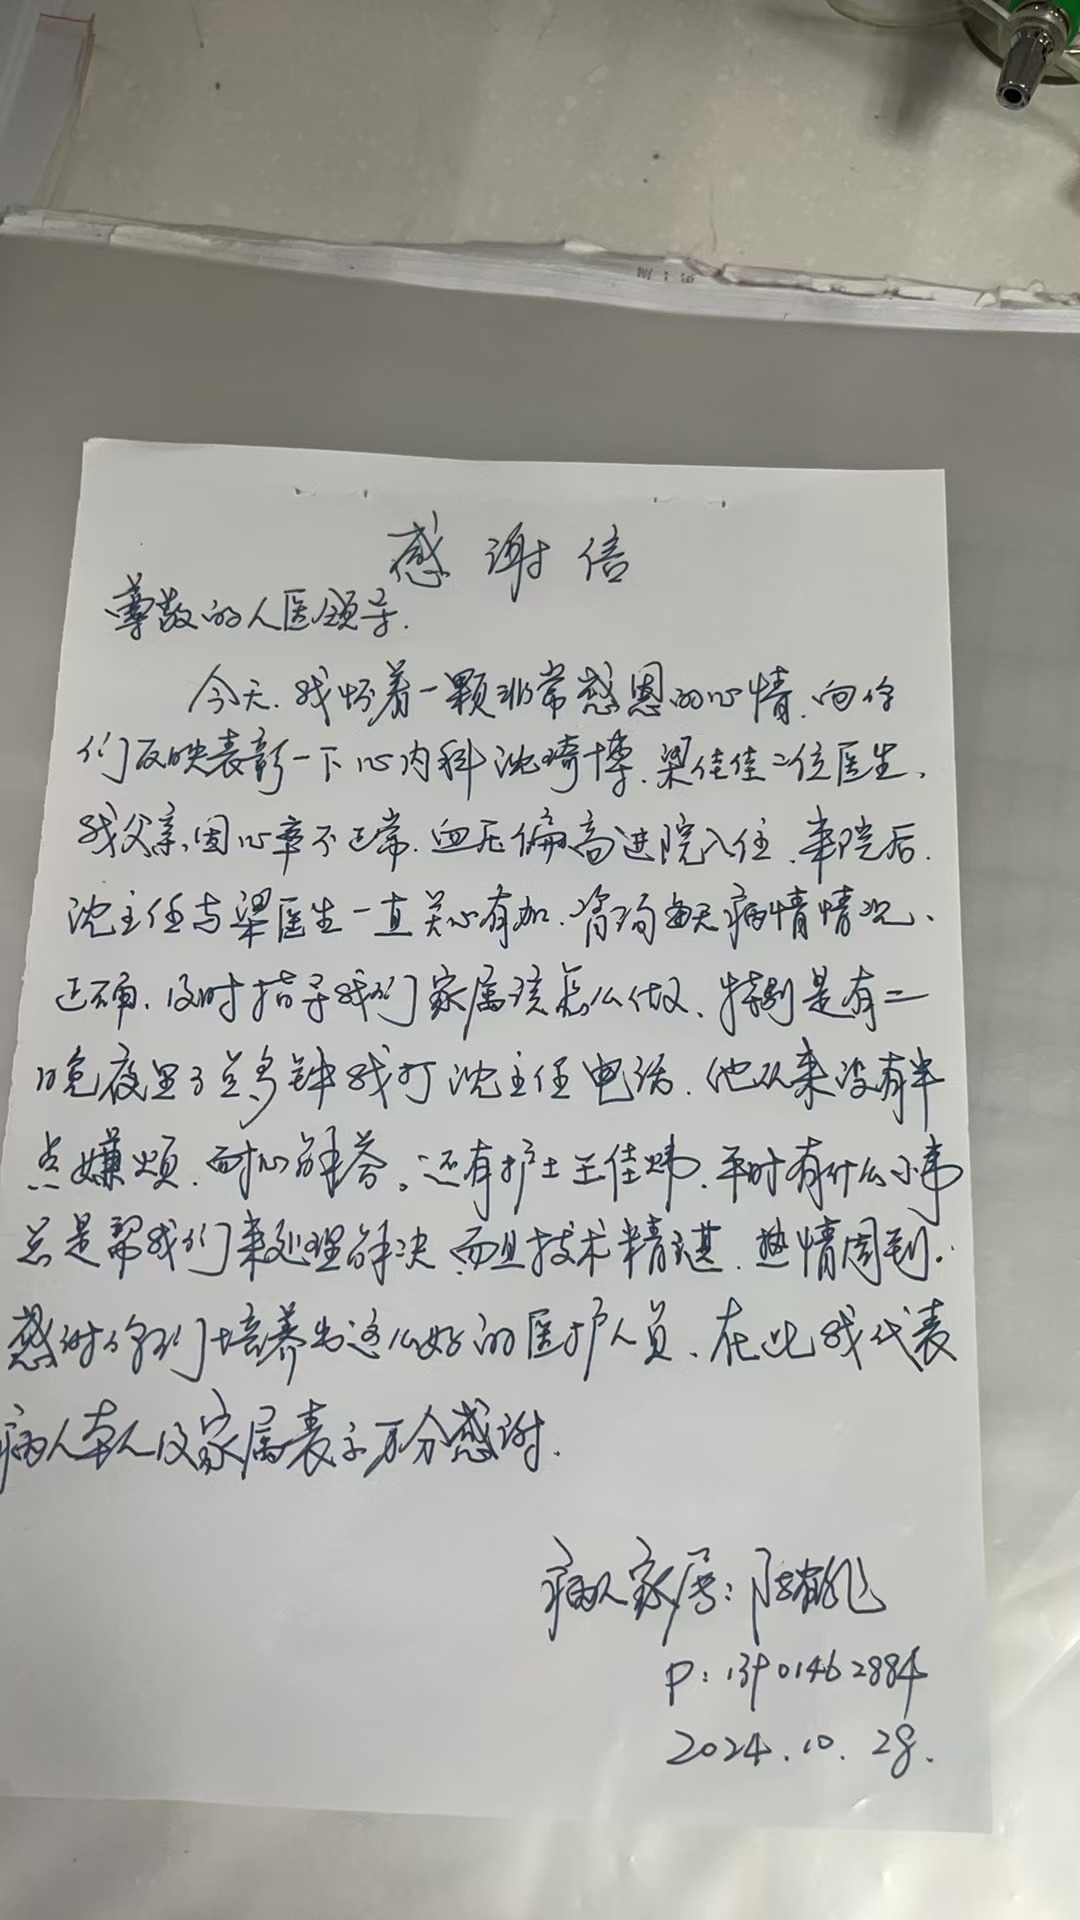 感谢信
尊敬的人医领导.
今天.我怀着一颗非常感恩的心情.向你
们反映表彰一下心内科沈琦博、梁佳佳二位医生、
我父亲因心率不正常.血压偏高进院入住.来院后.
沈主任与梁医生一直关心有加.咨询每天病情情况、
正确.及时指导我们家属该怎么做、特别是有二
晚夜里3点多钟我打沈主任电话.他从来没有半
点嫌烦.耐心解答。还有护士王佳炜.平时有什么小事
总是帮我们来处理解决.而且技术精湛.热情周到.
感谢你们培养出这么好的医护人员、在此我代表
病人本人及家属表示万分感谢.
病人家属:
P: 13901462884
2024.10.28.